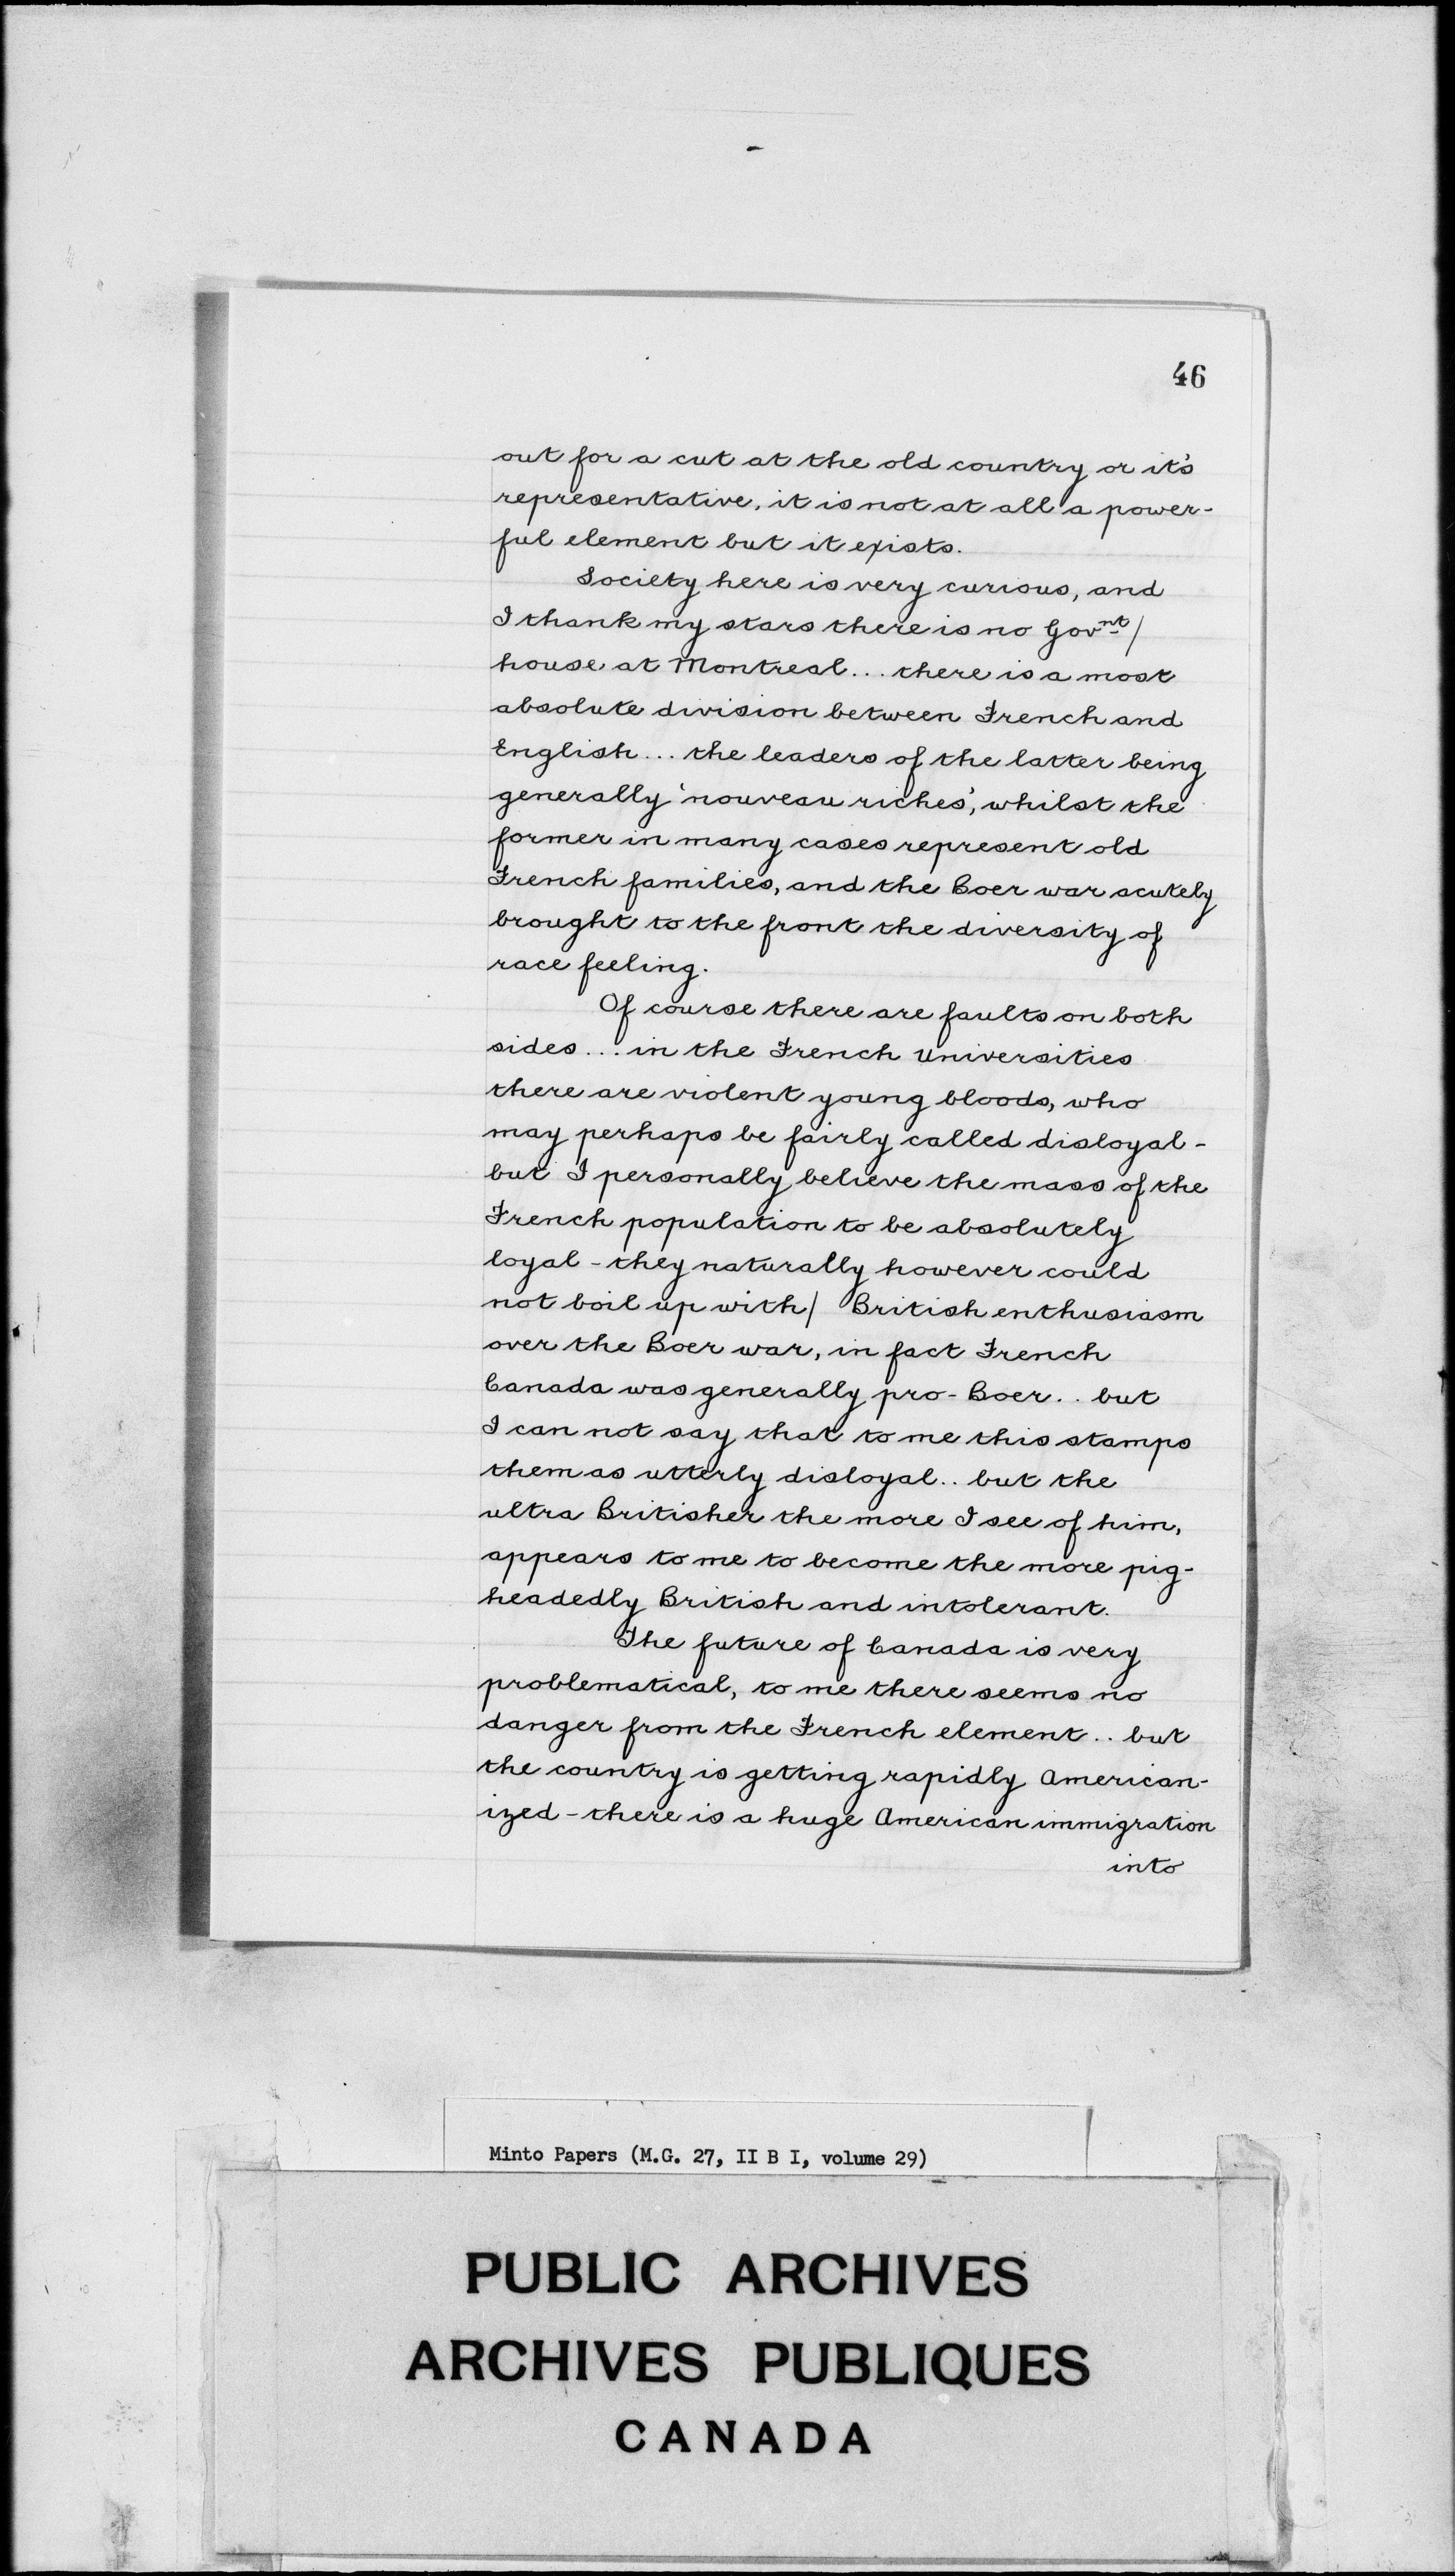 46
out for a cut at the old country or it's
representative, it is not at all a power-
ful element but it exists.
Society here is very curious, and
I thank my stars there is no Govnt/
house at Montreal... there is a most
absolute division between French and
English... the leaders of the latter being
generally 'nouveau riches', whilst the
former in many cases represent old
French families, and the Boer war acutely
brought to the front the diversity of
race feeling.
Of course there are faults on both
sides... in the French Universities
there are violent young bloods, who
may perhaps be fairly called disloyal -
but I personally believe the mass of the
French population to be absolutely
loyal - they naturally however could
not boil up with/ British enthusiasm
over the Boer war, in fact French
Canada was generally pro-Boer.. but
I can not say that to me this stamps
them as utterly disloyal.. but the
ultra Britisher the more I see of him,
appears to me to become the more pig-
headedly British and intolerant.
The future of Canada is very
problematical, to me there seems no
danger from the French element.. but
the country is getting rapidly American-
ized - there is a huge American immigration
into
Minto Papers (M.G. 27, II B I, volume 29)
PUBLIC ARCHIVES
ARCHIVES PUBLIQUES
CANADA